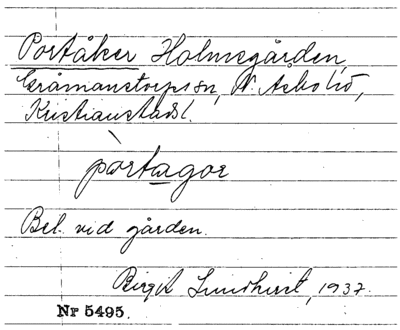 Portåker Holmegården,
Gråmanstorps sn, N. Asbo hd,
Kristianstads l.
pòrtagor
Bel. vid gården.
Birgit Lundkvist, 1937.
Nr 5495.